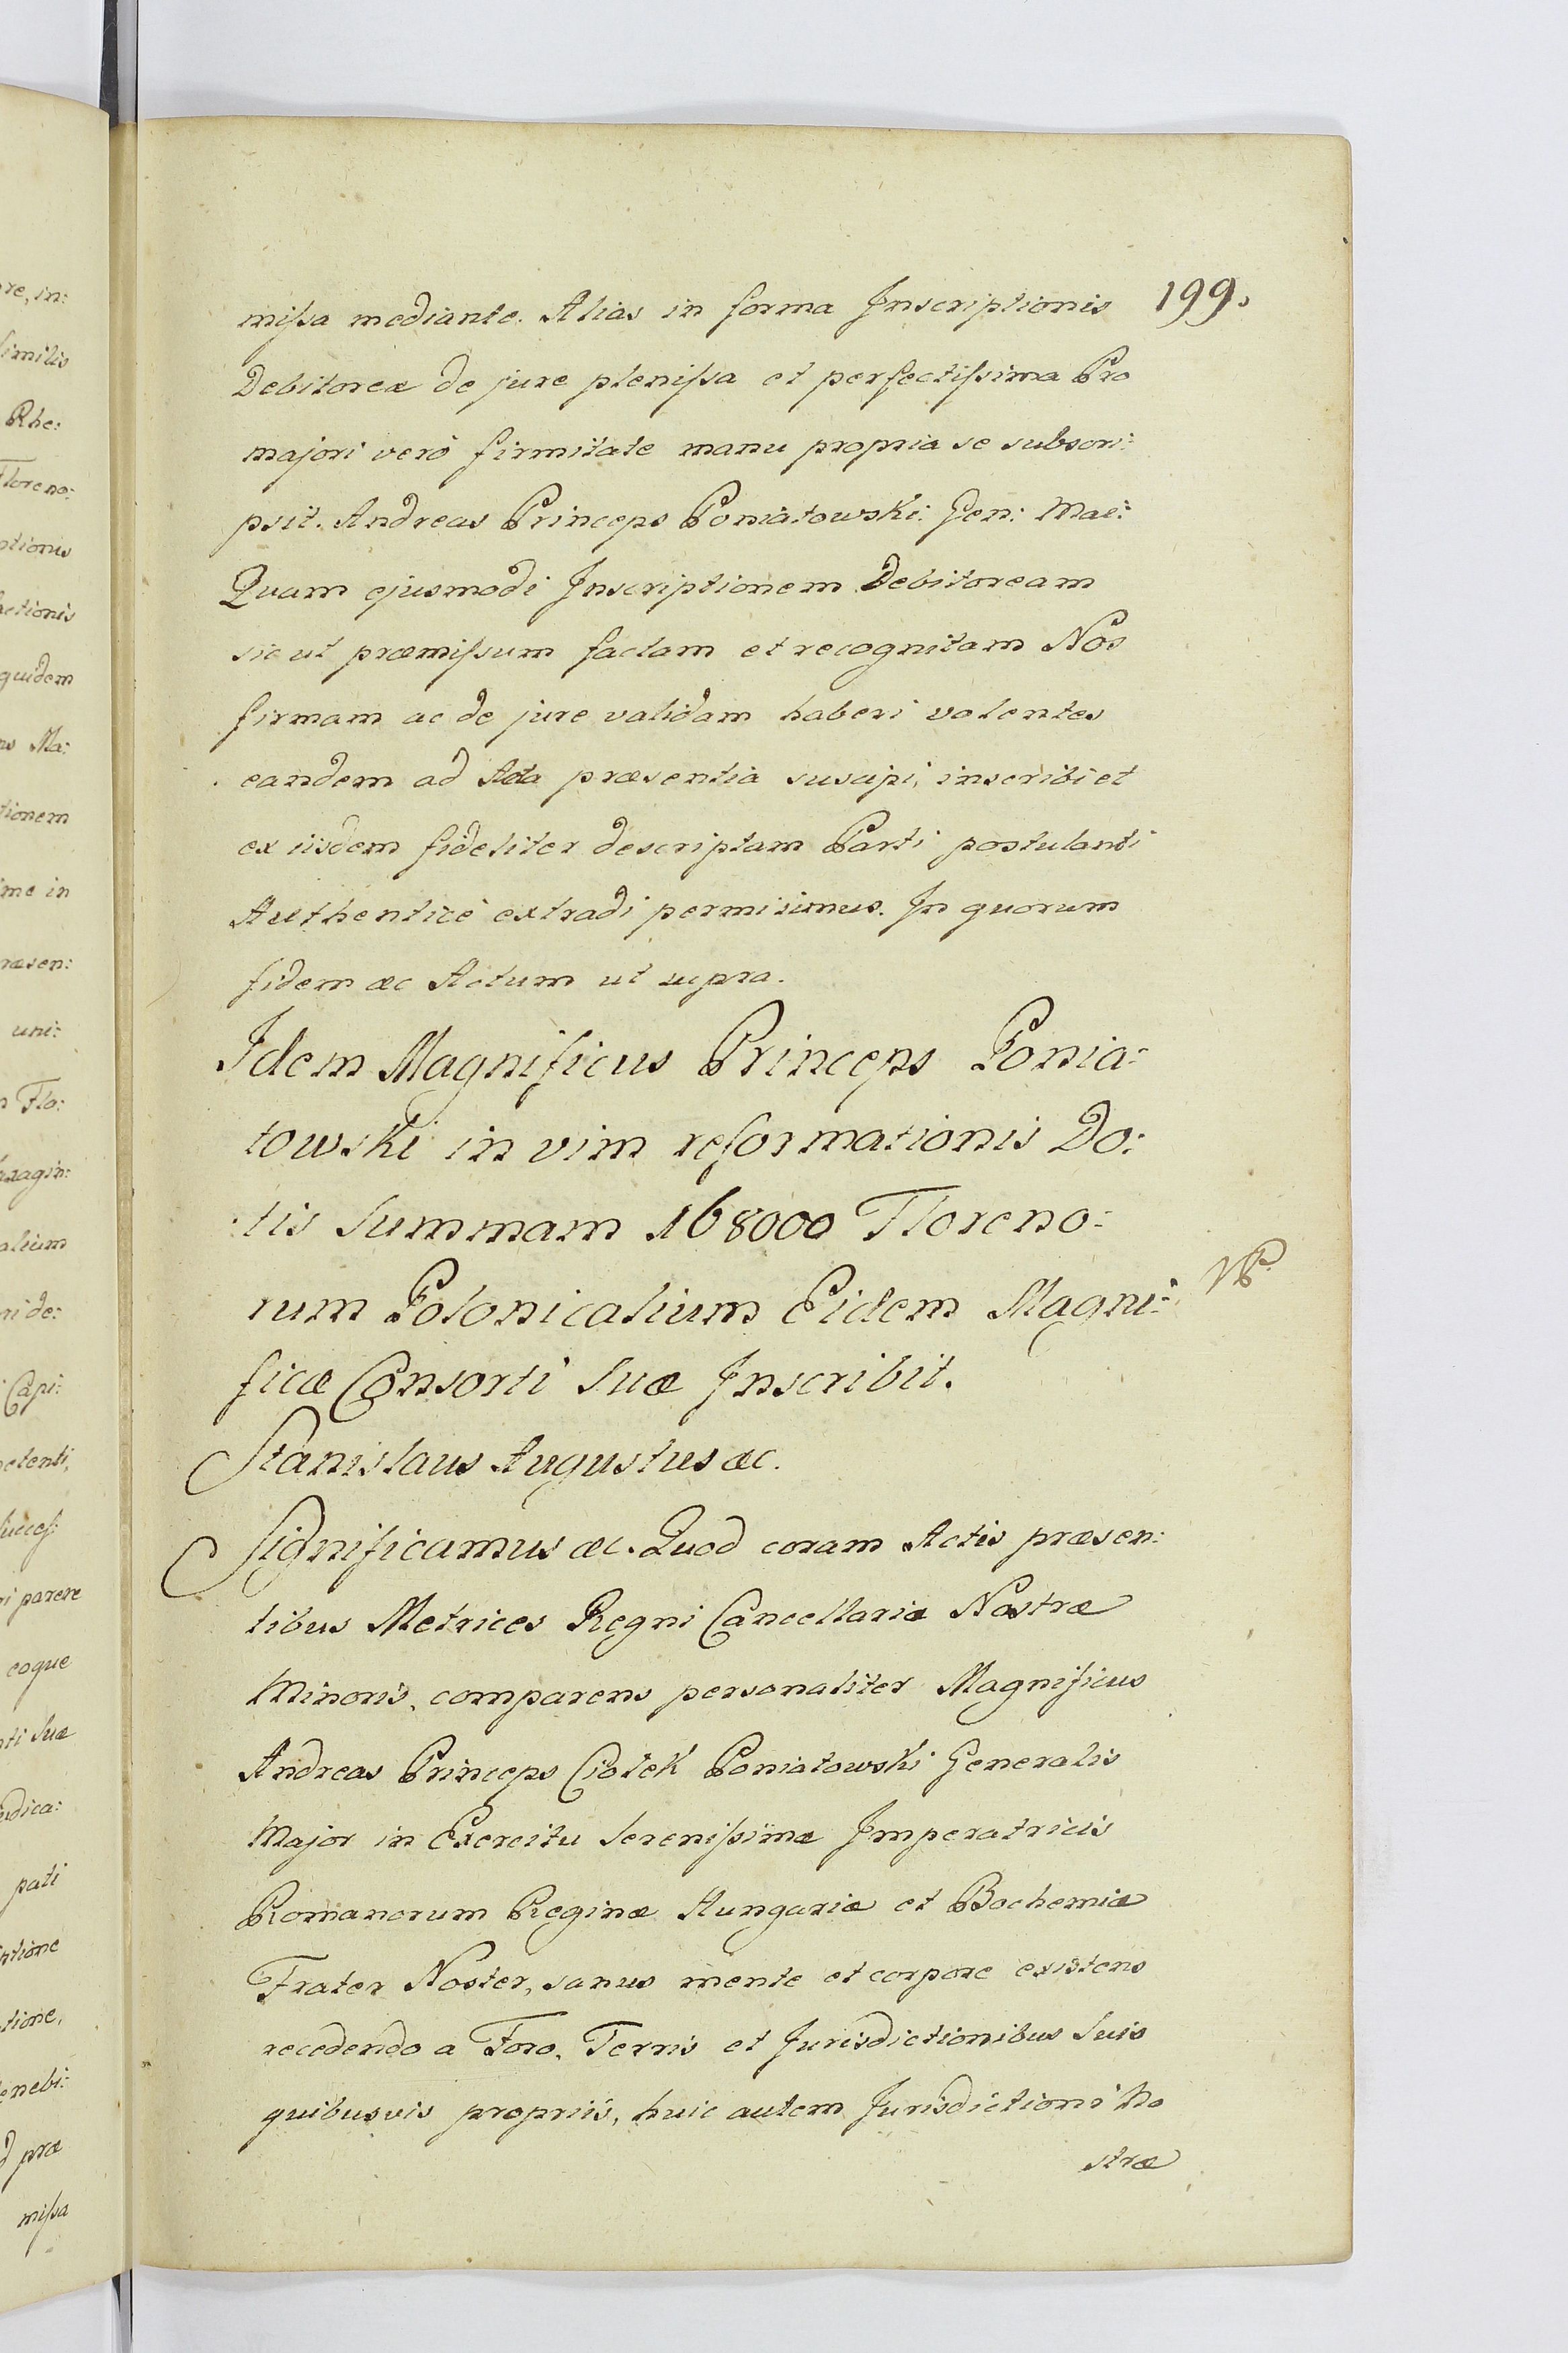 199.
miſsa mediante. Alias in forma Inscriptionis
Debitoreæ de jure pleniſsa et perfectiſsima Pro
majori verò firmitate manu propria se subscri:
psit. Andreas Princeps Poniatowski. Gen: Mae:
Quam ejusmodi Inscriptionem Debitoream
sic ut præmiſsum factam et recognitam Nos
firmam ac de jure validam haberi volentes
eandem ad Acta præsentia suscipi, inscribi et
ex iisdem fideliter descriptam Parti postulanti
Authenticè extradi permisimus. In quorum
fidem æc Actum ut supra.
Idem Magnificus Princeps Ponia:
towski in vim reformationis Do:
tis Summam 168000 Floreno:
rum Polonicalium Eidem Magni:
ficæ Consorti Suæ Inscribit.
Stanislaus Augustus æc.
Significamus æc. Quod coram Actis præsen:
tibus Metrices Regni Cancellariæ Nostræ
Minoris, comparens personaliter Magnificus
Andreas Princeps Ciołek Poniatowski Generalis
Major in Exercitu Sereniſsimæ Imperatricis
Romanorum Reginæ Hungariæ et Bochemiæ
Frater Noster, sanus mente et corpore existens
recedendo a Foro, Terris et Jurisdictionibus Suis
quibusvis propriis, huic autem Jurisdictioni No
stræ
re, in:
similis
Rhe:
Floreno:
ptionis
actionis
quidem
Ma:
tionem
me in
ræsen:
uni:
Flo:
uragin:
alium
ni de:
Capi:
petenti,
Succeſ:
i parere
eoque
nti Suæ
udica:
pati
ptione
tione,
enebi:
d præ
miſsa